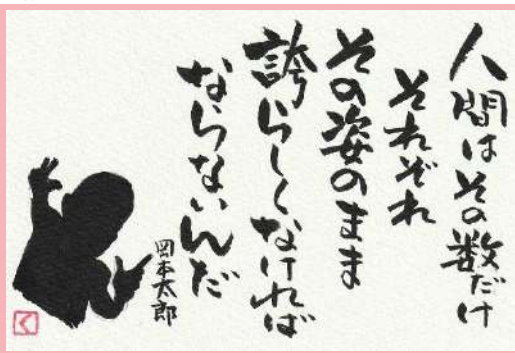 人間はその数だけ
それぞれ
その姿のまま
誇らしくなければ
ならないんだ
岡本太郎
く